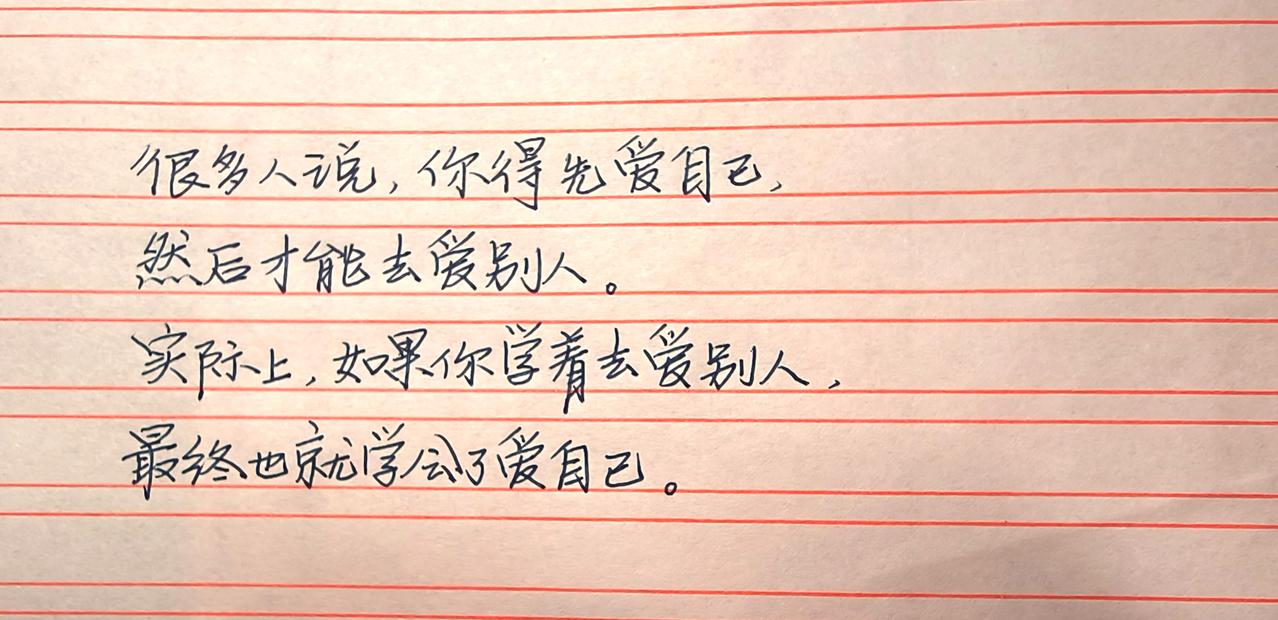 很多人说，你得先爱自己，
然后才能去爱别人。
实际上，如果你学着去爱别人，
最终也就学会了爱自己。